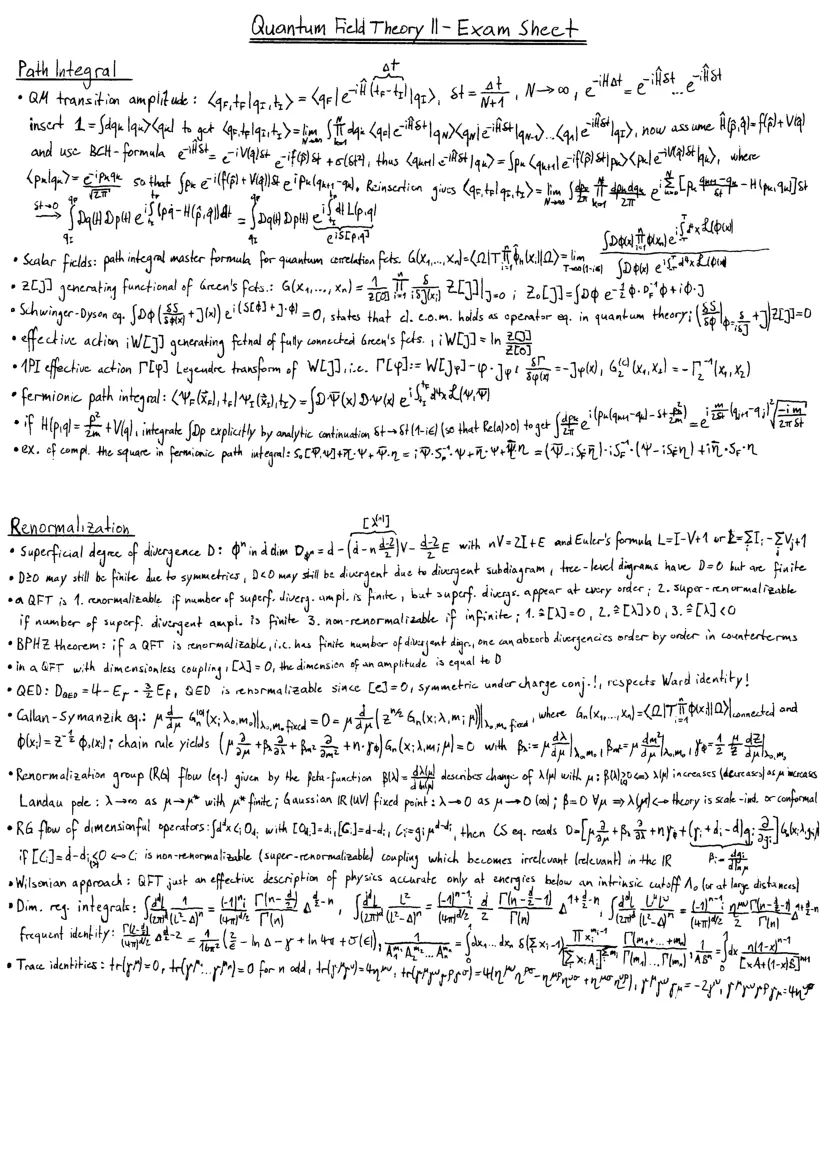 Quantum Field Theory II - Exam Sheet
Path Integral
• QM transition amplitude: ⟨q_F,t_F|q_I,t_I⟩ = ⟨q_F|e^{-iĤ(t_F-t_I)}|q_I⟩, δt = Δt/(N+1), N→∞, e^{-iHΔt} = e^{-iĤδt}...e^{-iĤδt}
insert 1 = ∫dq_k |q_k⟩⟨q_k| to get ⟨q_F,t_F|q_I,t_I⟩ = lim_{N→∞} ∫∏dq_k ⟨q_F|e^{-iĤδt}|q_N⟩⟨q_N|e^{-iĤδt}|q_{N-1}⟩...⟨q_1|e^{-iĤδt}|q_I⟩, now assume Ĥ(p̂,q̂) = f(p̂) + V(q̂)
and use BCH-formula e^{-iĤδt} = e^{-iV(q̂)δt} e^{-if(p̂)δt} + O(δt²), thus ⟨q_{k+1}|e^{-iĤδt}|q_k⟩ = ∫p_k ⟨q_{k+1}|e^{-if(p̂)δt}|p_k⟩⟨p_k|e^{-iV(q̂)δt}|q_k⟩, where
⟨p_k|q_k⟩ = e^{-ip_kq_k}/√2π so that ∫p_k e^{-i(f(p̂)+V(q̂))δt} e^{ip_k(q_{k+1}-q_k)}. Reinsertion gives ⟨q_F,t_F|q_I,t_I⟩ = lim_{N→∞} ∫dp_0/2π ∏_{k=1}^{N} dp_k dq_k/2π e^{i∑_{k=0}^{N}[p_k (q_{k+1}-q_k)/δt - H(p_k,q_k)]δt}
δt→0 → ∫_{q_I}^{q_F} Dq(t) Dp(t) e^{i∫_{t_I}^{t_F}(pq̇ - H(p̂,q̂))dt} = ∫_{q_I}^{q_F} Dq(t) Dp(t) e^{i∫_{t_I}^{t_F} dt L(p,q)} e^{iS[p,q]}
• Scalar fields: path integral master formula for quantum correlation fcts. G(x_1,...,x_n) = ⟨Ω|T∏_{i=1}^{n} φ̂_H(x_i)|Ω⟩ = lim_{T→∞(1-iε)} ∫Dφ(x)∏φ(x_i) e^{i∫_{-T}^{T} d⁴x ℒ(φ(x))} / ∫Dφ(x) e^{i∫_{-T}^{T} d⁴x ℒ(φ(x))}
• Z[J] generating functional of Green's fcts.: G(x_1,...,x_n) = 1/Z[0] ∏_{i=1}^{n} δ/iδJ(x_i) Z[J]|_{J=0}; Z_0[J] = ∫Dφ e^{-½φ·D_F^{-1}φ + iφ·J}
• Schwinger-Dyson eq. ∫Dφ (δS/δφ(x) + J(x)) e^{i(S[φ]+J·φ)} = 0, states that cl. e.o.m. holds as operator eq. in quantum theory; (δS/δφ|_{φ=δ/iδJ} + J) Z[J] = 0
• effective action iW[J] generating fctnal of fully connected Green's fcts., iW[J] = ln Z[J]/Z[0]
• 1PI effective action Γ[φ] Legendre transform of W[J], i.e. Γ[φ] := W[J_φ] - φ·J_φ; δΓ/δφ(x) = -J_φ(x), G_2^{(c)}(x_1,x_2) = -Γ_2^{-1}(x_1,x_2)
• fermionic path integral: ⟨Ψ_F(x⃗_F),t_F|Ψ_I(x⃗_I),t_I⟩ = ∫DΨ̄(x) DΨ(x) e^{i∫_{t_I}^{t_F} d⁴x ℒ(Ψ,Ψ̄)}
• if H(p,q) = p²/2m + V(q), integrate ∫Dp explicitly by analytic continuation δt→δt(1-iε) (so that Re(a)>0) to get ∫dp_k/2π e^{i(p_k(q_{k+1}-q_k)-δt p_k²/2m)} = e^{i m/2δt (q_{j+1}-q_j)²} √(-im/2πδt)
• ex. of compl. the square in fermionic path integral: S_0[Ψ̄,Ψ] + η̄·Ψ + Ψ̄·η = iΨ̄·S_F^{-1}·Ψ + η̄·Ψ + Ψ̄·η = (Ψ̄ - iS_Fη̄)·iS_F^{-1}·(Ψ - iS_Fη) + iη̄·S_F·η
Renormalization
• Superficial degree of divergence D: φⁿ in d dim D_{φⁿ} = d - (d - n (d-2)/2)V - (d-2)/2 E with nV = 2I + E and Euler's formula L = I - V + 1 or L = ∑I_i - ∑V_j + 1
[λ]
• D≥0 may still be finite due to symmetries, D<0 may still be divergent due to divergent subdiagram, tree-level digrams have D=0 but are finite
• a QFT is 1. renormalizable if number of superf. diverg. ampl. is finite, but superf. divergs. appear at every order; 2. super-renormalizable
if number of superf. divergent ampl. is finite 3. non-renormalizable if infinite; 1. ≙ [λ] = 0, 2. ≙ [λ] > 0, 3. ≙ [λ] < 0
• BPHZ theorem: if a QFT is renormalizable, i.e. has finite number of divergent digr., one can absorb divergencies order by order in counterterms
• in a QFT with dimensionless coupling, [λ] = 0, the dimension of an amplitude is equal to D
• QED: D_QED = 4 - E_γ - 3/2 E_f, QED is renormalizable since [e] = 0, symmetric under charge conj.!, respects Ward identity!
• Callan-Symanzik eq.: μ d/dμ G_n^{(0)}(x_i; λ_0,m_0)|_{λ_0,m_0 fixed} = 0 = μ d/dμ (Z^{n/2} G_n(x_i; λ,m;μ))|_{λ_0,m_0 fixed}, where G_n(x_1,...,x_n) = ⟨Ω|T∏_{i=1}^{n} φ(x_i)|Ω⟩|_connected and
φ(x_i) = Z^{-½} φ_0(x_i); chain rule yields (μ ∂/∂μ + β_λ ∂/∂λ + β_{m²} ∂/∂m² + n·γ_φ) G_n(x_i; λ,m;μ) = 0 with β_λ := μ dλ/dμ|_{λ_0,m_0}, β_{m²} = μ dm²/dμ|_{λ_0,m_0}, γ_φ = ½ μ/Z dZ/dμ|_{λ_0,m_0}
• Renormalization group (RG) flow (eq.) given by the beta-function β(λ) = dλ(μ)/d ln(μ) describes change of λ(μ) with μ: β(λ)≷0 ⇔ λ(μ) increases (decreases) as μ increases
Landau pole: λ→∞ as μ→μ* with μ* finite; Gaussian IR (UV) fixed point: λ→0 as μ→0 (∞); β=0 ∀μ ⇒ λ(μ) ↔ theory is scale-ind. or conformal
• RG flow of dimensionful operators: ∫d^dx C_i O_{d_i} with [O_{d_i}] = d_i, [C_i] = d-d_i, C_i = g_i μ^{d-d_i}, then CS eq. reads 0 = [μ ∂/∂μ + β_λ ∂/∂λ + nγ_φ + (γ_i + d_i - d)g_i ∂/∂g_i] G_n(x_i;λ,g_i;μ)
if [C_i] = d-d_i ≶ 0 ↔ C_i is non-renormalizable (super-renormalizable) coupling which becomes irrelevant (relevant) in the IR β_i = dg_i/d ln μ
• Wilsonian approach: QFT just an effective description of physics accurate only at energies below an intrinsic cutoff Λ_0 (or at large distances)
• Dim. reg. integrals: ∫d^dL/(2π)^d 1/(L²-Δ)ⁿ = (-1)ⁿi/(4π)^{d/2} Γ(n-d/2)/Γ(n) Δ^{d/2-n}, ∫d^dL/(2π)^d L²/(L²-Δ)ⁿ = (-1)^{n-1}i/(4π)^{d/2} d/2 Γ(n-d/2-1)/Γ(n) Δ^{1+d/2-n}, ∫d^dL/(2π)^d L^μL^ν/(L²-Δ)ⁿ = (-1)^{n-1}i/(4π)^{d/2} η^{μν}/2 Γ(n-d/2-1)/Γ(n) Δ^{1+d/2-n}
frequent identity: Γ(2-d/2)/(4π)^{d/2} Δ^{d/2-2} = 1/16π² (2/ε - ln Δ - γ + ln 4π + O(ε)), 1/(A_1^{m_1} A_2^{m_2}...A_n^{m_n}) = ∫_0^1 dx_1...dx_n δ(∑x_i-1) ∏x_i^{m_i-1}/[∑x_iA_i]^{∑m_i} Γ(m_1+...+m_n)/Γ(m_1)...Γ(m_n), 1/ABⁿ = ∫_0^1 dx n(1-x)^{n-1}/[xA+(1-x)B]^{n+1}
• Trace identities: tr(γ^μ) = 0, tr(γ^μ...γ^μ) = 0 for n odd, tr(γ^μγ^ν) = 4η^{μν}, tr(γ^μγ^νγ^ργ^σ) = 4(η^{μν}η^{ρσ} - η^{μρ}η^{νσ} + η^{μσ}η^{νρ}), γ^μγ^νγ_μ = -2γ^ν, γ^μγ^νγ^ργ_μ = 4η^{νρ}